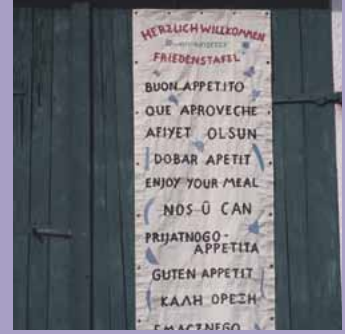 HERZLICH WILLKOMMEN
FRIEDENSTAFEL
BUON APPETITO
QUE APROVECHE
AFIYET OLSUN
DOBAR APETIT
ENJOY YOUR MEAL
NOS Û CAN
PRIJATNOGO-
APPETITA
GUTEN APPETIT
ΚΑΛΗ ΟΡΕΞΗ
SMACZNEGO